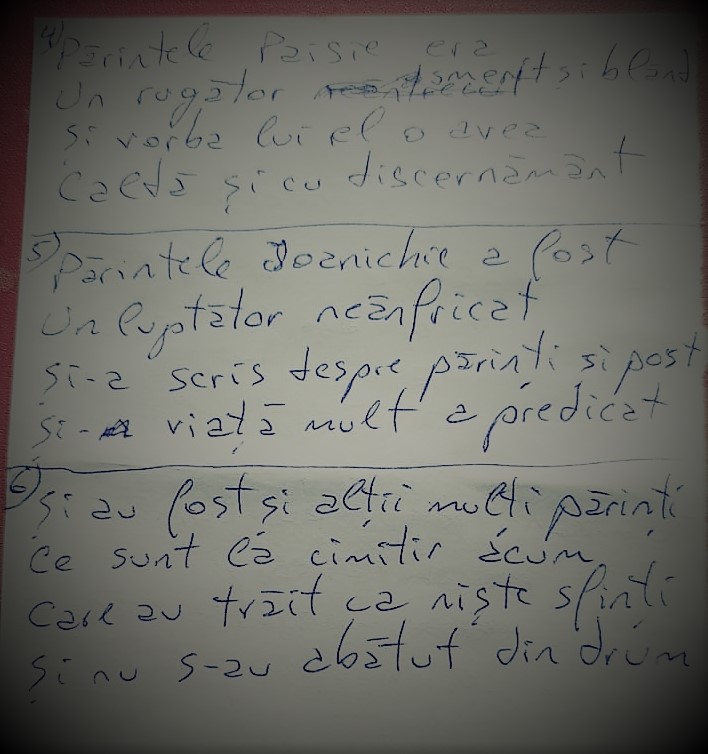 4) Părintele Paisie era
Un rugător smerit și blând
Și vorba lui el o avea
Caldă și cu discernământ
5) Părintele Ioanichie a fost
Un luptător neânfricat
Și-a scris despre părinți si post
Și- viață mult a predicat
6) Și au fost și alții mulți părinți
Ce sunt la cimitir acum
Care au trăit ca niște sfinți
Și nu s-au abătut din drum